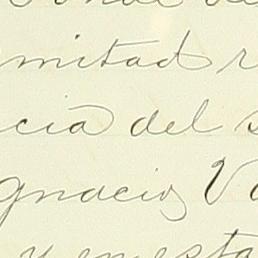 mitad
cia del
gnacio V
y en esta